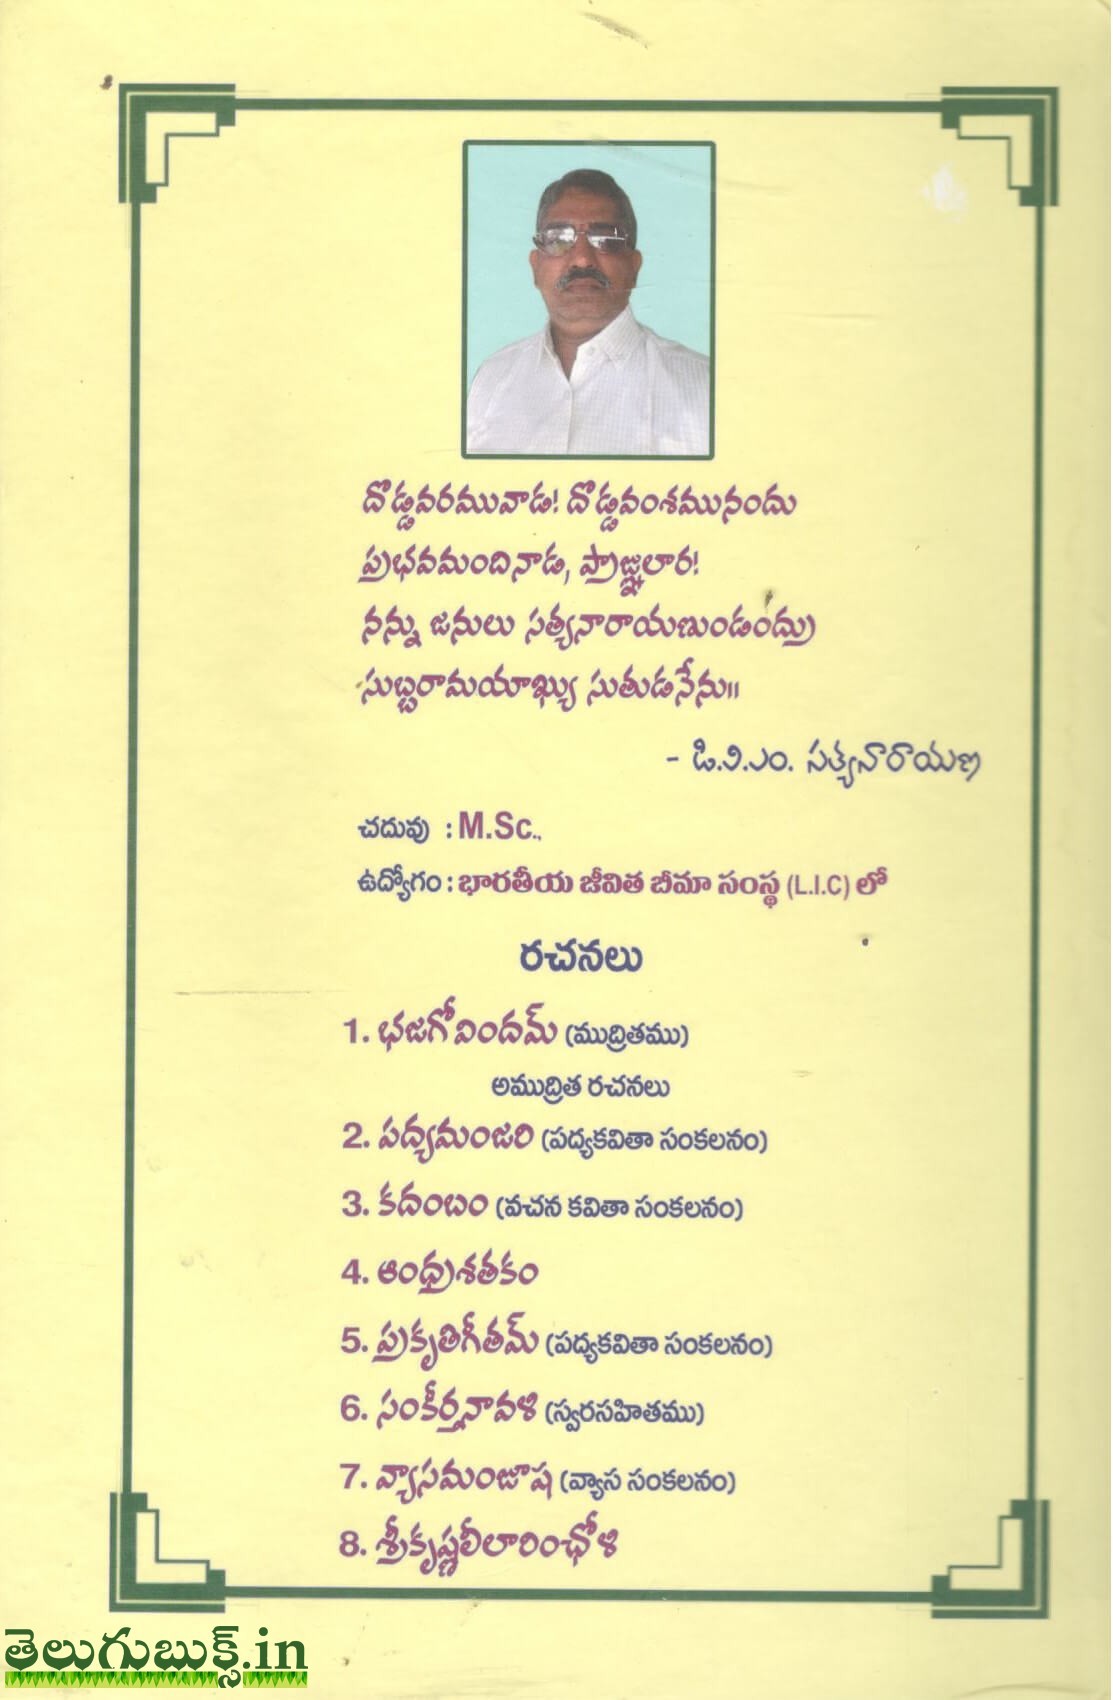 దొడ్డవరమువాడ! దొడ్డవంశమునందు
ప్రభవమందినాడ, ప్రాజ్ఞులార!
నన్ను జనులు సత్యనారాయణుండంద్రు
సుబ్బరామయాఖ్యు సుతుడనేను॥
- డి.వి.ఎం. సత్యనారాయణ
చదువు : M.Sc.,
ఉద్యోగం : భారతీయ జీవిత బీమా సంస్థ (L.I.C) లో
రచనలు
1. భజగోవిందమ్ (ముద్రితము)
అముద్రిత రచనలు
2. పద్యమంజరి (పద్యకవితా సంకలనం)
3. కదంబం (వచన కవితా సంకలనం)
4. ఆంధ్రుశతకం
5. ప్రకృతిగీతమ్ (పద్యకవితా సంకలనం)
6. సంకీర్తనావళి (స్వరసహితము)
7. వ్యాసమంజూష (వ్యాస సంకలనం)
8. శ్రీకృష్ణలీలారింఛోళి
తెలుగుబుక్స్.in